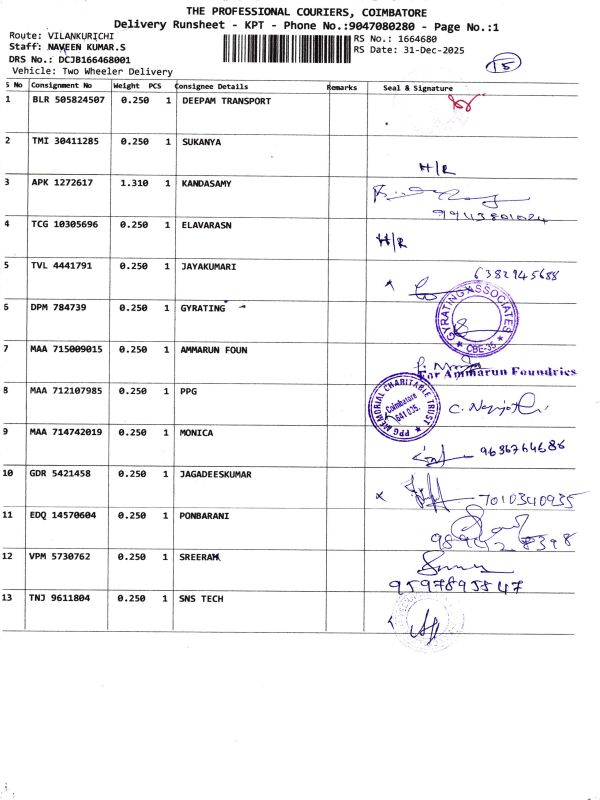 THE PROFESSIONAL COURIERS, COIMBATORE
Delivery Runsheet - KPT - Phone No.:9047080280 - Page No.:1
Route: VILANKURICHI
RS No.: 1664680
Staff: NAVEEN KUMAR.S
RS Date: 31-Dec-2025
DRS No.: DCJB166468001
15
Vehicle: Two Wheeler Delivery
S No Consignment No Weight PCS Consignee Details Remarks Seal & Signature
1 BLR 505824507 0.250 1 DEEPAM TRANSPORT
2 TMI 30411285 0.250 1 SUKANYA
H/R
3 APK 1272617 1.310 1 KANDASAMY
9943801024
4 TCG 10305696 0.250 1 ELAVARASN
H/R
5 TVL 4441791 0.250 1 JAYAKUMARI
6382945688
6 DPM 784739 0.250 1 GYRATING
GYRATING ASSOCIATES
CBE-35
7 MAA 715009015 0.250 1 AMMARUN FOUN
For Ammarun Foundries
8 MAA 712107985 0.250 1 PPG
PPG MEMORIAL CHARITABLE TRUST
Coimbatore
641 035.
9 MAA 714742019 0.250 1 MONICA
9636764686
10 GDR 5421458 0.250 1 JAGADEESKUMAR
7010340935
11 EDQ 14570604 0.250 1 PONBARANI
12 VPM 5730762 0.250 1 SREERAM
9597895547
13 TNJ 9611804 0.250 1 SNS TECH